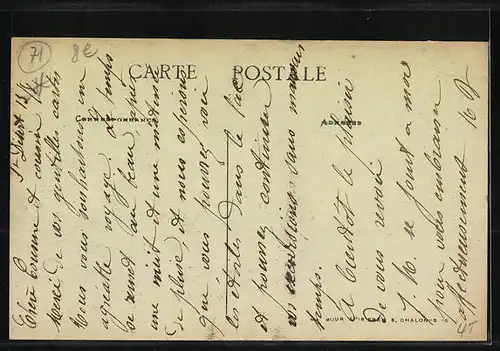 71
8e
CARTE POSTALE
CORRESPONDANCE
ADRESSE
Chère Cousine et cousin
Merci de vos gentilles cartes
Nous vous souhaitons un
agréable voyage. Le temps
se remet au beau, après
une nuit et une matinée
de pluie, et nous espérons
que vous pouvez voir
les étoiles dans le lac
et pouvez continuer
vos excursions sans mauvais
temps.
A bientôt le plaisir
de vous revoir
J. M. se joint à moi
pour vous embrasser
affectueusement